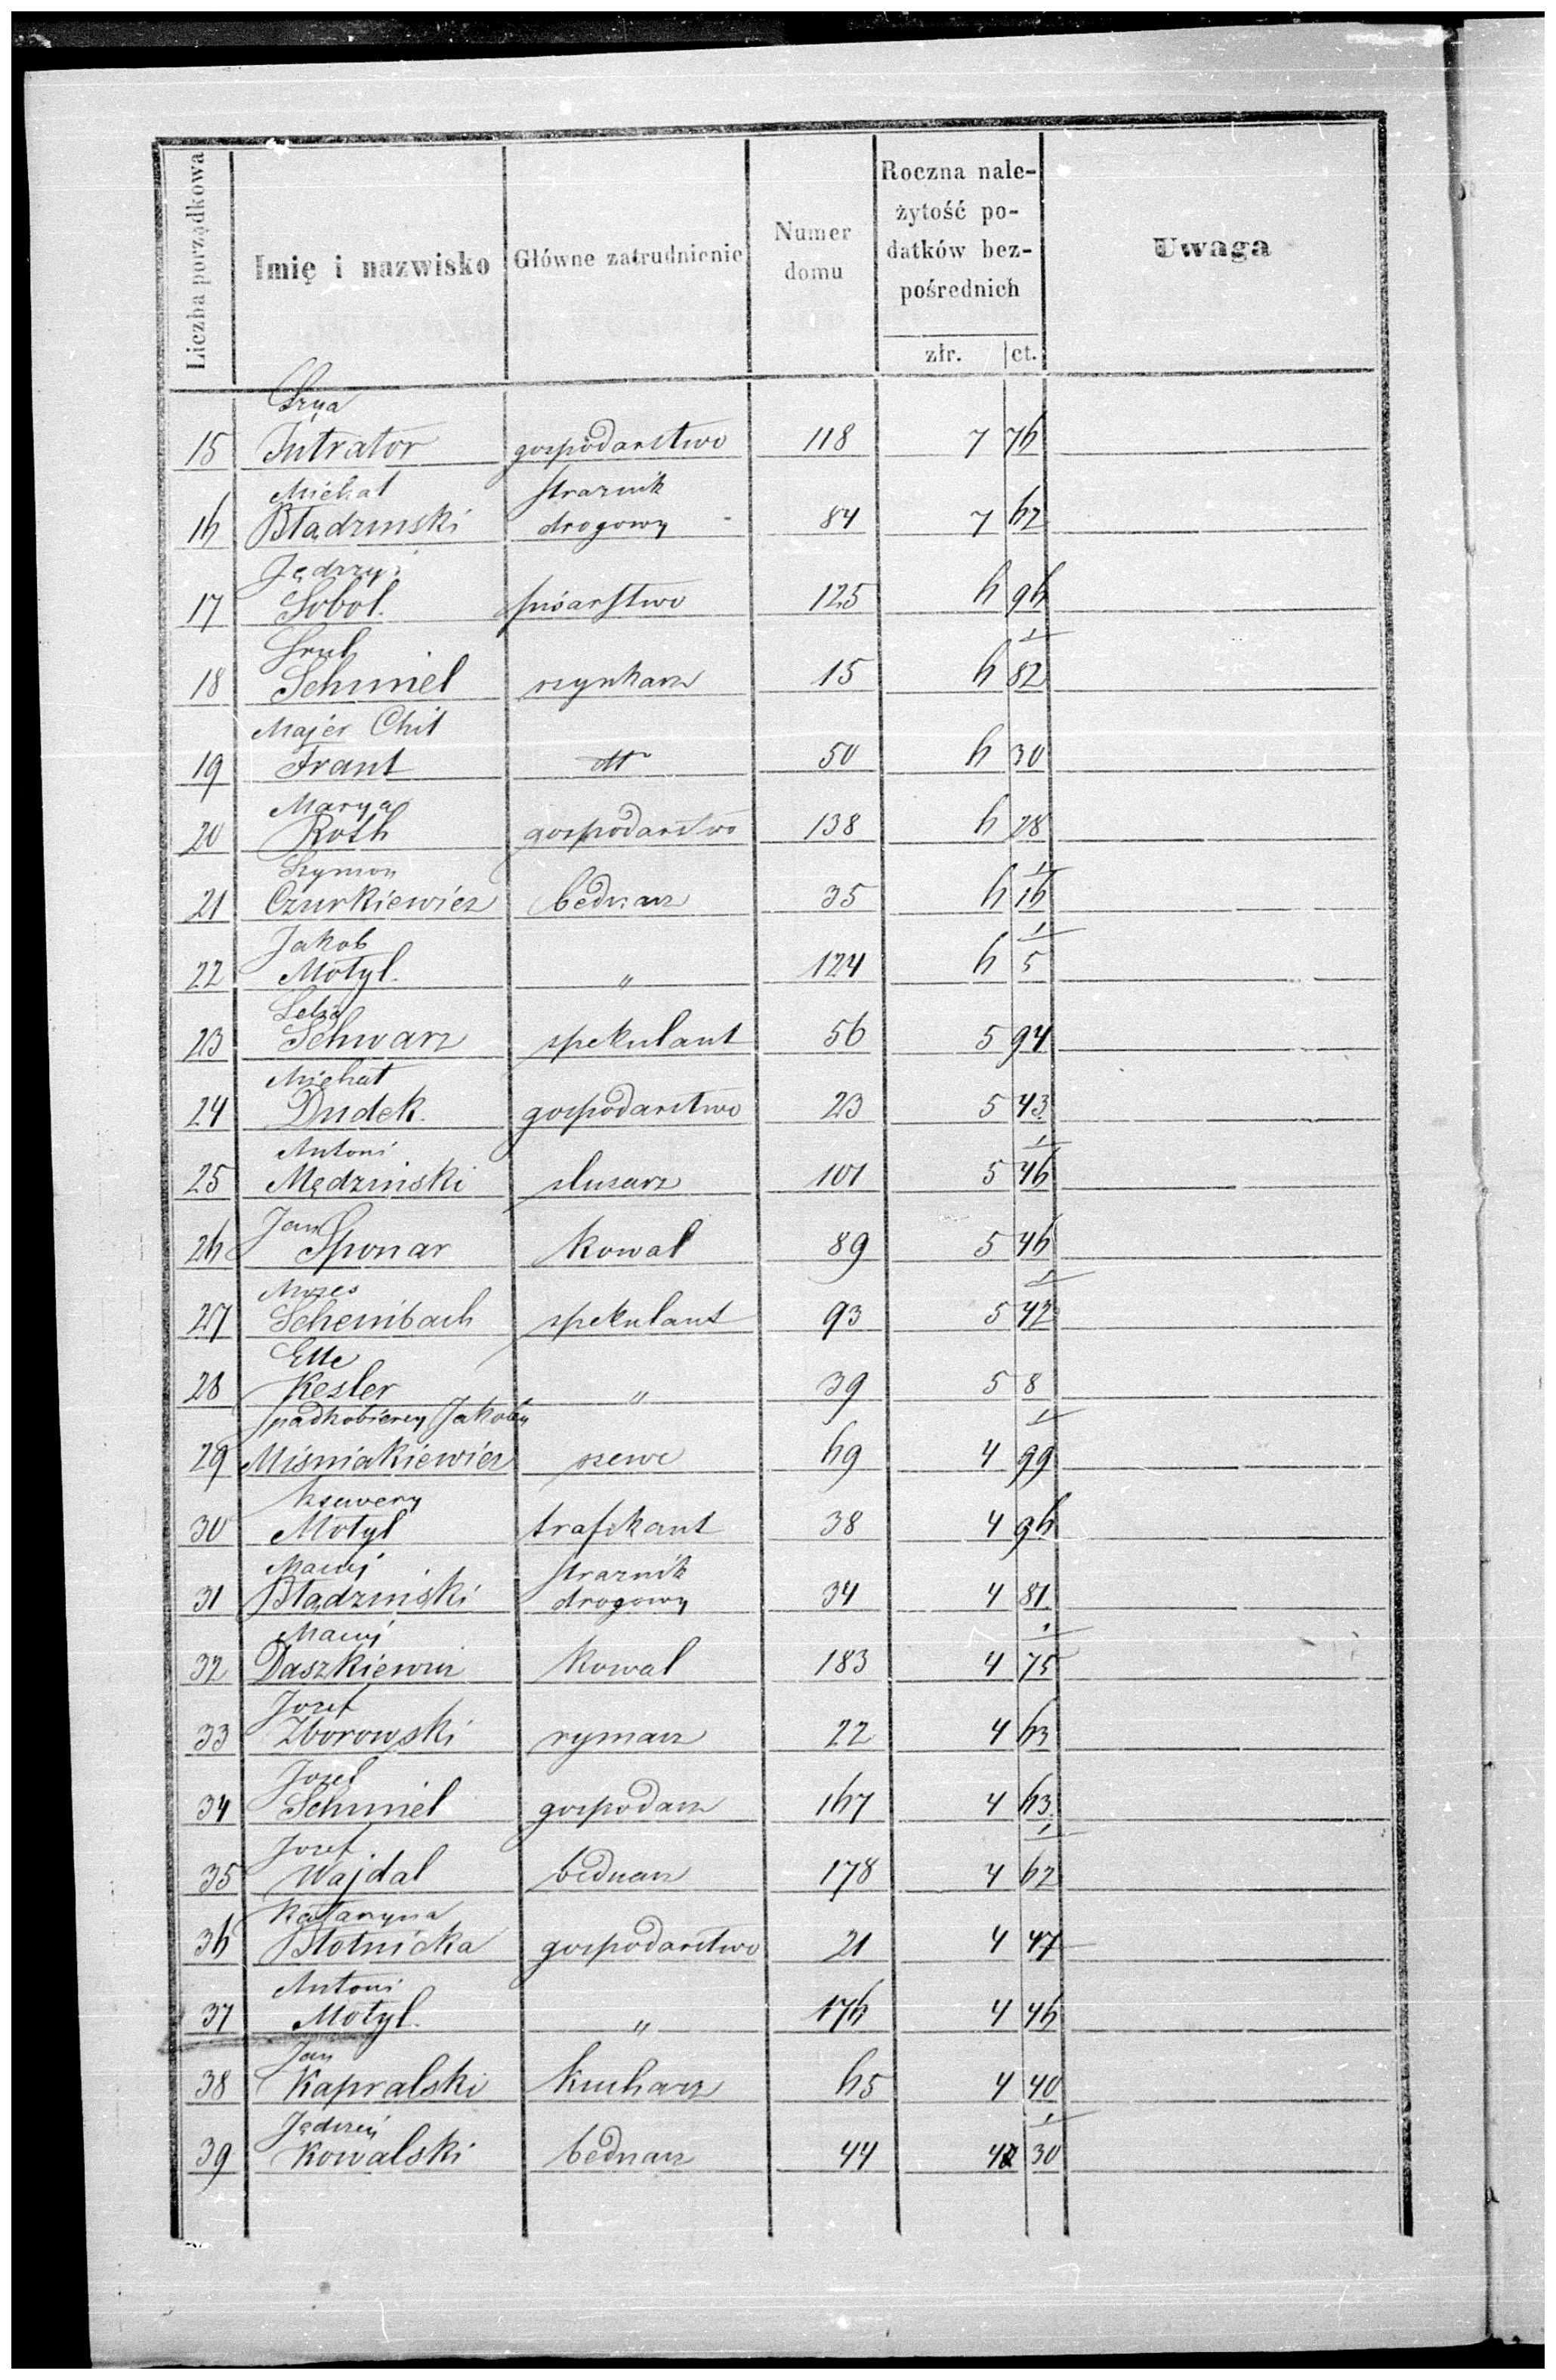 Liczba porządkowa
Imię i nazwisko
Główne zatrudnienie
Numer domu
Roczna nale-
żytość po-
datków bez-
pośrednich
złr. ct.
Uwaga
15 Intrator gospodarstwo 118 7 76
Michał strażnik
16 Błądziński drogowy 84 7 62
Jędrzej
17 Sobol pisarstwo 125 6 96
Srul
18 Schmiel szynkarz 15 6 82
Majer Chil
19 Frant dtto 50 6 30
Marya
20 Roth gospodarstwo 138 6 28
Szymon
21 Czurkiewicz bednarz 35 6 16
Jakob
22 Motyl „ 124 6 5
23 Schwarz spekulant 56 5 94
Michał
24 Dudek gospodarstwo 23 5 43
Antoni
25 Mędziński slusarz 101 5 46
Jan
26 Sponar Kowal 89 5 46
Mozes
27 Scheinbach spekulant 93 5 42
Ette
28 Kesler „ 39 5 8
spadkobiercy Jakoba
29 Miśniakiewicz szewc 69 4 99
Ksawery
30 Motyl trafikant 38 4 96
Maciej strażnik
31 Błądziński drogowy 34 4 81
Maciej
32 Daszkiewicz Kowal 183 4 75
Jozef
33 Zborowski rymarz 22 4 63
Jozef
34 Schmiel gospodarz 167 4 63
Jozef
35 Wajdal bednarz 178 4 62
Katarzyna
36 Błotnicka gospodarstwo 21 4 47
Antoni
37 Motyl „ 176 4 46
Jan
38 Kapralski kucharz 65 4 40
Jędrzej
39 Kowalski bednarz 44 4 30